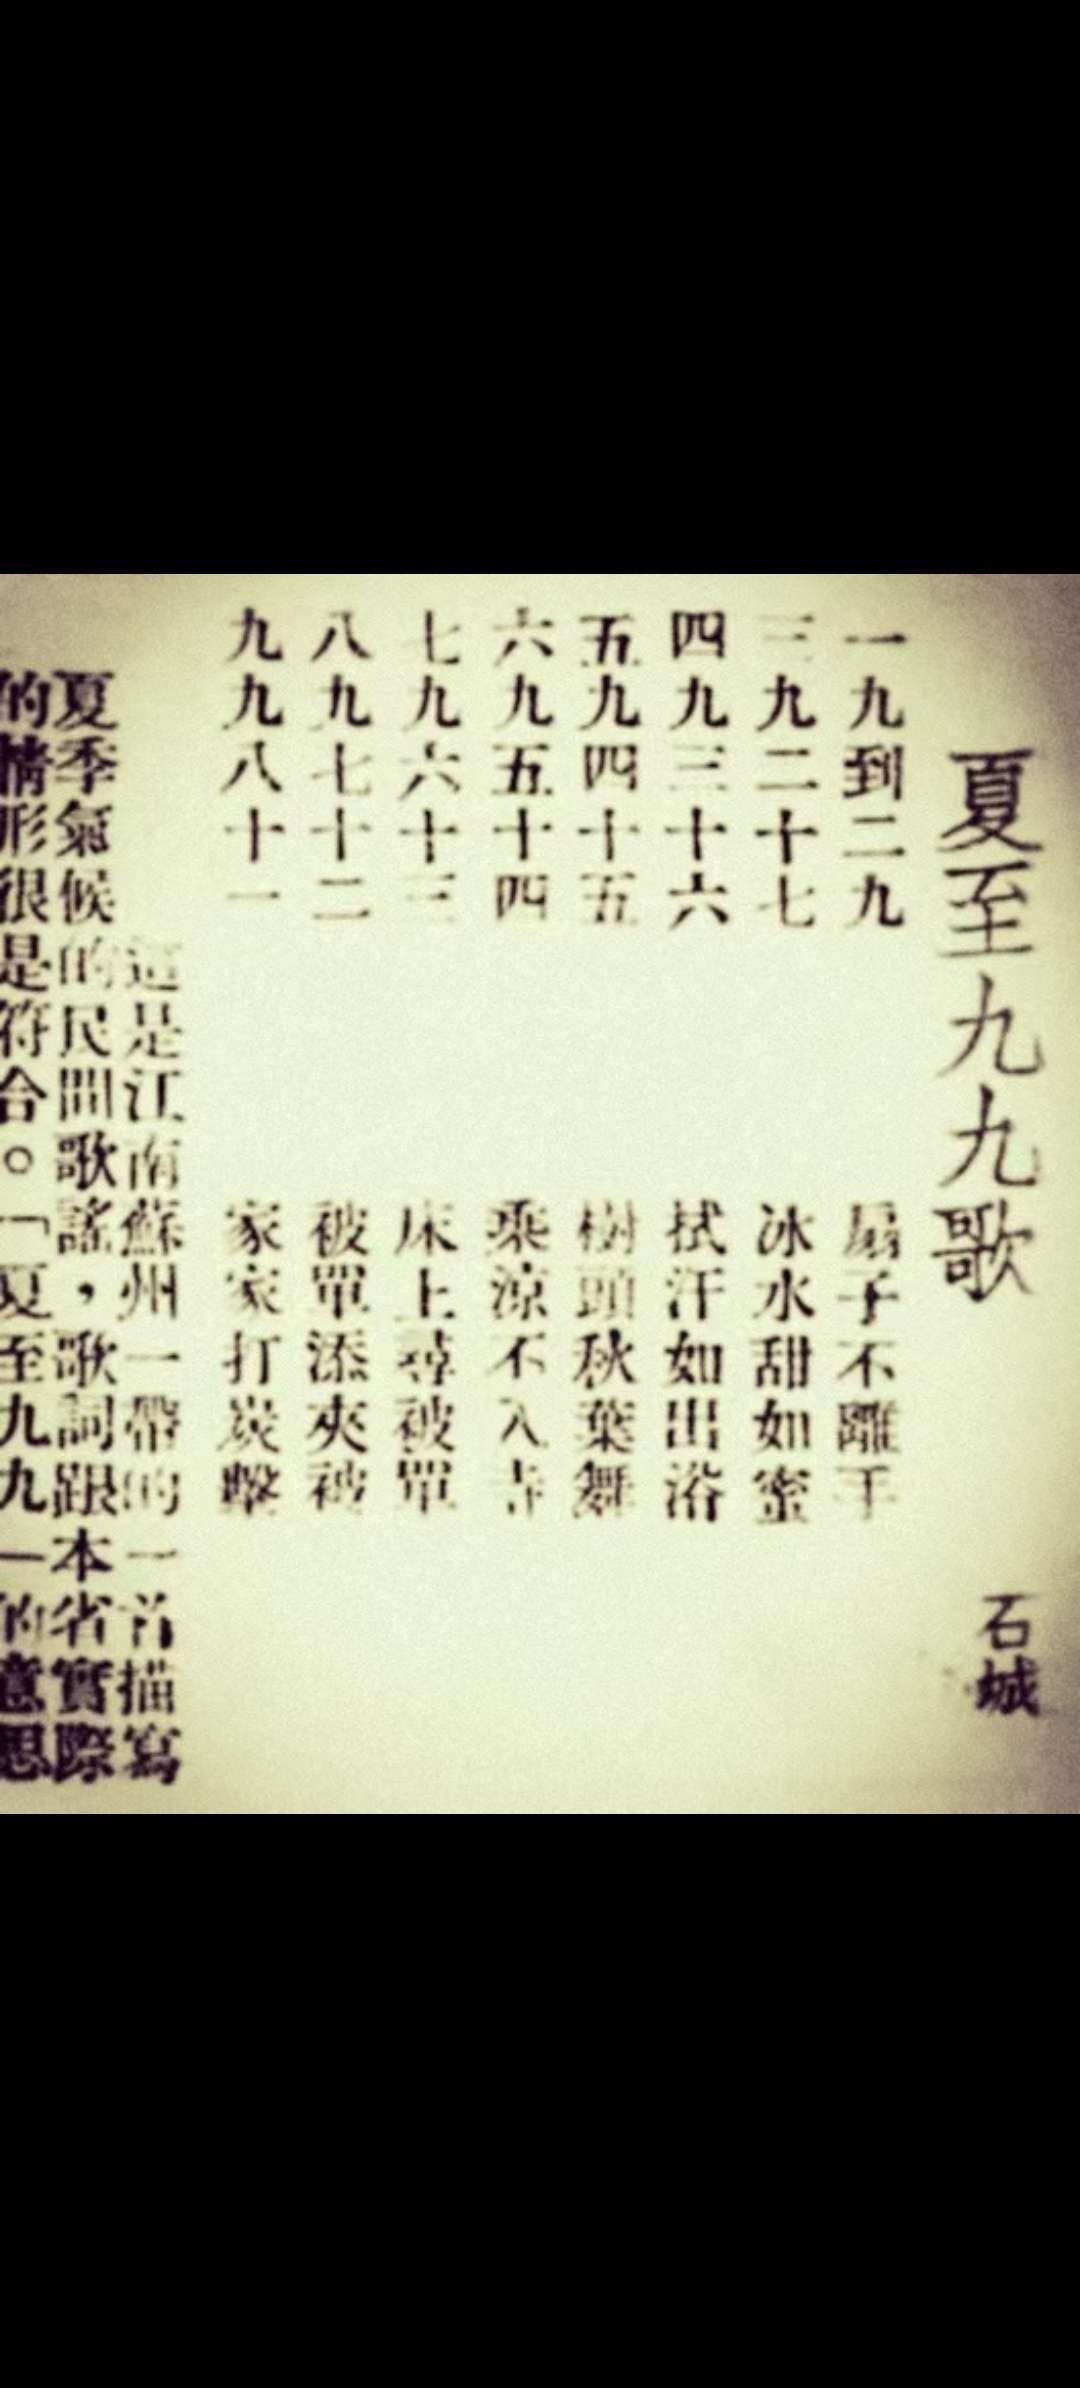 夏至九九歌
石城
一九到二九 扇子不離手
三九二十七 冰水甜如蜜
四九三十六 拭汗如出浴
五九四十五 樹頭秋葉舞
六九五十四 乘涼不入寺
七九六十三 床上尋被單
八九七十二 被單添夾被
九九八十一 家家打炭擊
這是江南蘇州一帶的一首描寫
夏季氣候的民間歌謠，歌詞跟本省實際
的情形很是符合。「夏至九九一的意思